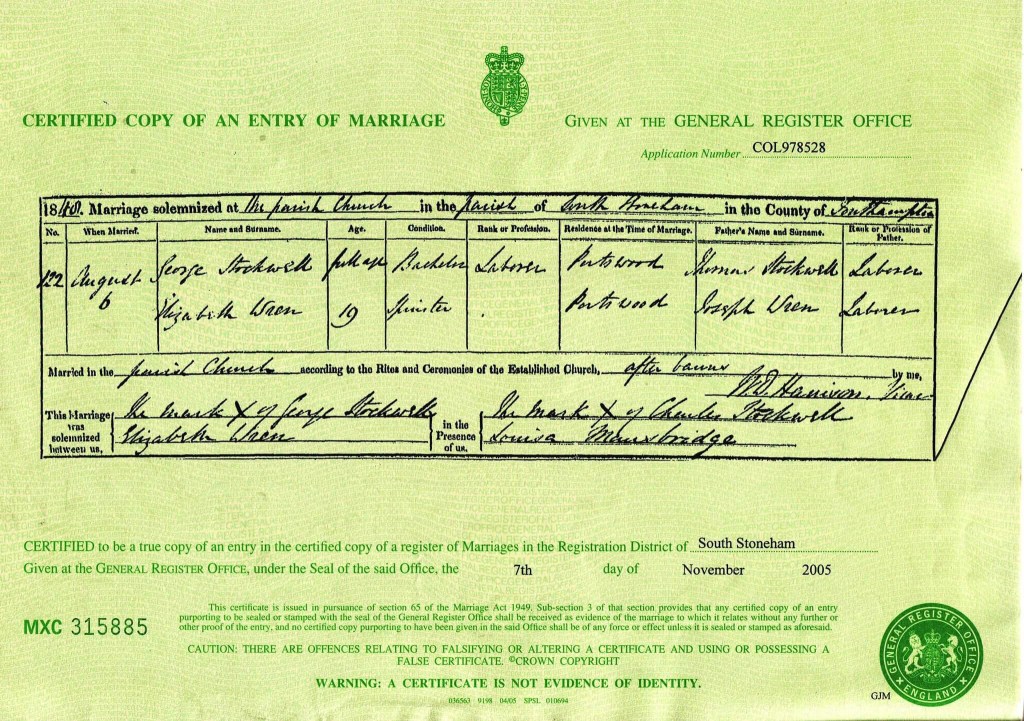 CERTIFIED COPY OF AN ENTRY OF MARRIAGE
GIVEN AT THE GENERAL REGISTER OFFICE
Application Number COL978528
1848. Marriage solemnized at the parish Church in the parish of South Stoneham in the County of Southampton
No. When Married. Name and Surname. Age. Condition. Rank or Profession. Residence at the Time of Marriage. Father's Name and Surname. Rank or Profession of Father.
122 August 6 George Stockwell full age Bachelor Laborer Portswood Thomas Stockwell Laborer
Elizabeth Wren 19 Spinster Portswood Joseph Wren Laborer
Married in the parish Church according to the Rites and Ceremonies of the Established Church, after banns by me,
Harrison, Vicar
This Marriage was solemnized between us, The mark X of George Stockwell in the Presence of us, The mark X of Charles Stockwell
Elizabeth Wren Louisa Mansbridge
CERTIFIED to be a true copy of an entry in the certified copy of a register of Marriages in the Registration District of South Stoneham
Given at the GENERAL REGISTER OFFICE, under the Seal of the said Office, the 7th day of November 2005
MXC 315885
This certificate is issued in pursuance of section 65 of the Marriage Act 1949. Sub-section 3 of that section provides that any certified copy of an entry
purporting to be sealed or stamped with the seal of the General Register Office shall be received as evidence of the marriage to which it relates without any further or
other proof of the entry, and no certified copy purporting to have been given in the said Office shall be of any force or effect unless it is sealed or stamped as aforesaid.
CAUTION: THERE ARE OFFENCES RELATING TO FALSIFYING OR ALTERING A CERTIFICATE AND USING OR POSSESSING A
FALSE CERTIFICATE. ©CROWN COPYRIGHT
WARNING: A CERTIFICATE IS NOT EVIDENCE OF IDENTITY.
036563 9198 04/05 SPSL 010694
GJM
GENERAL REGISTER OFFICE
ENGLAND